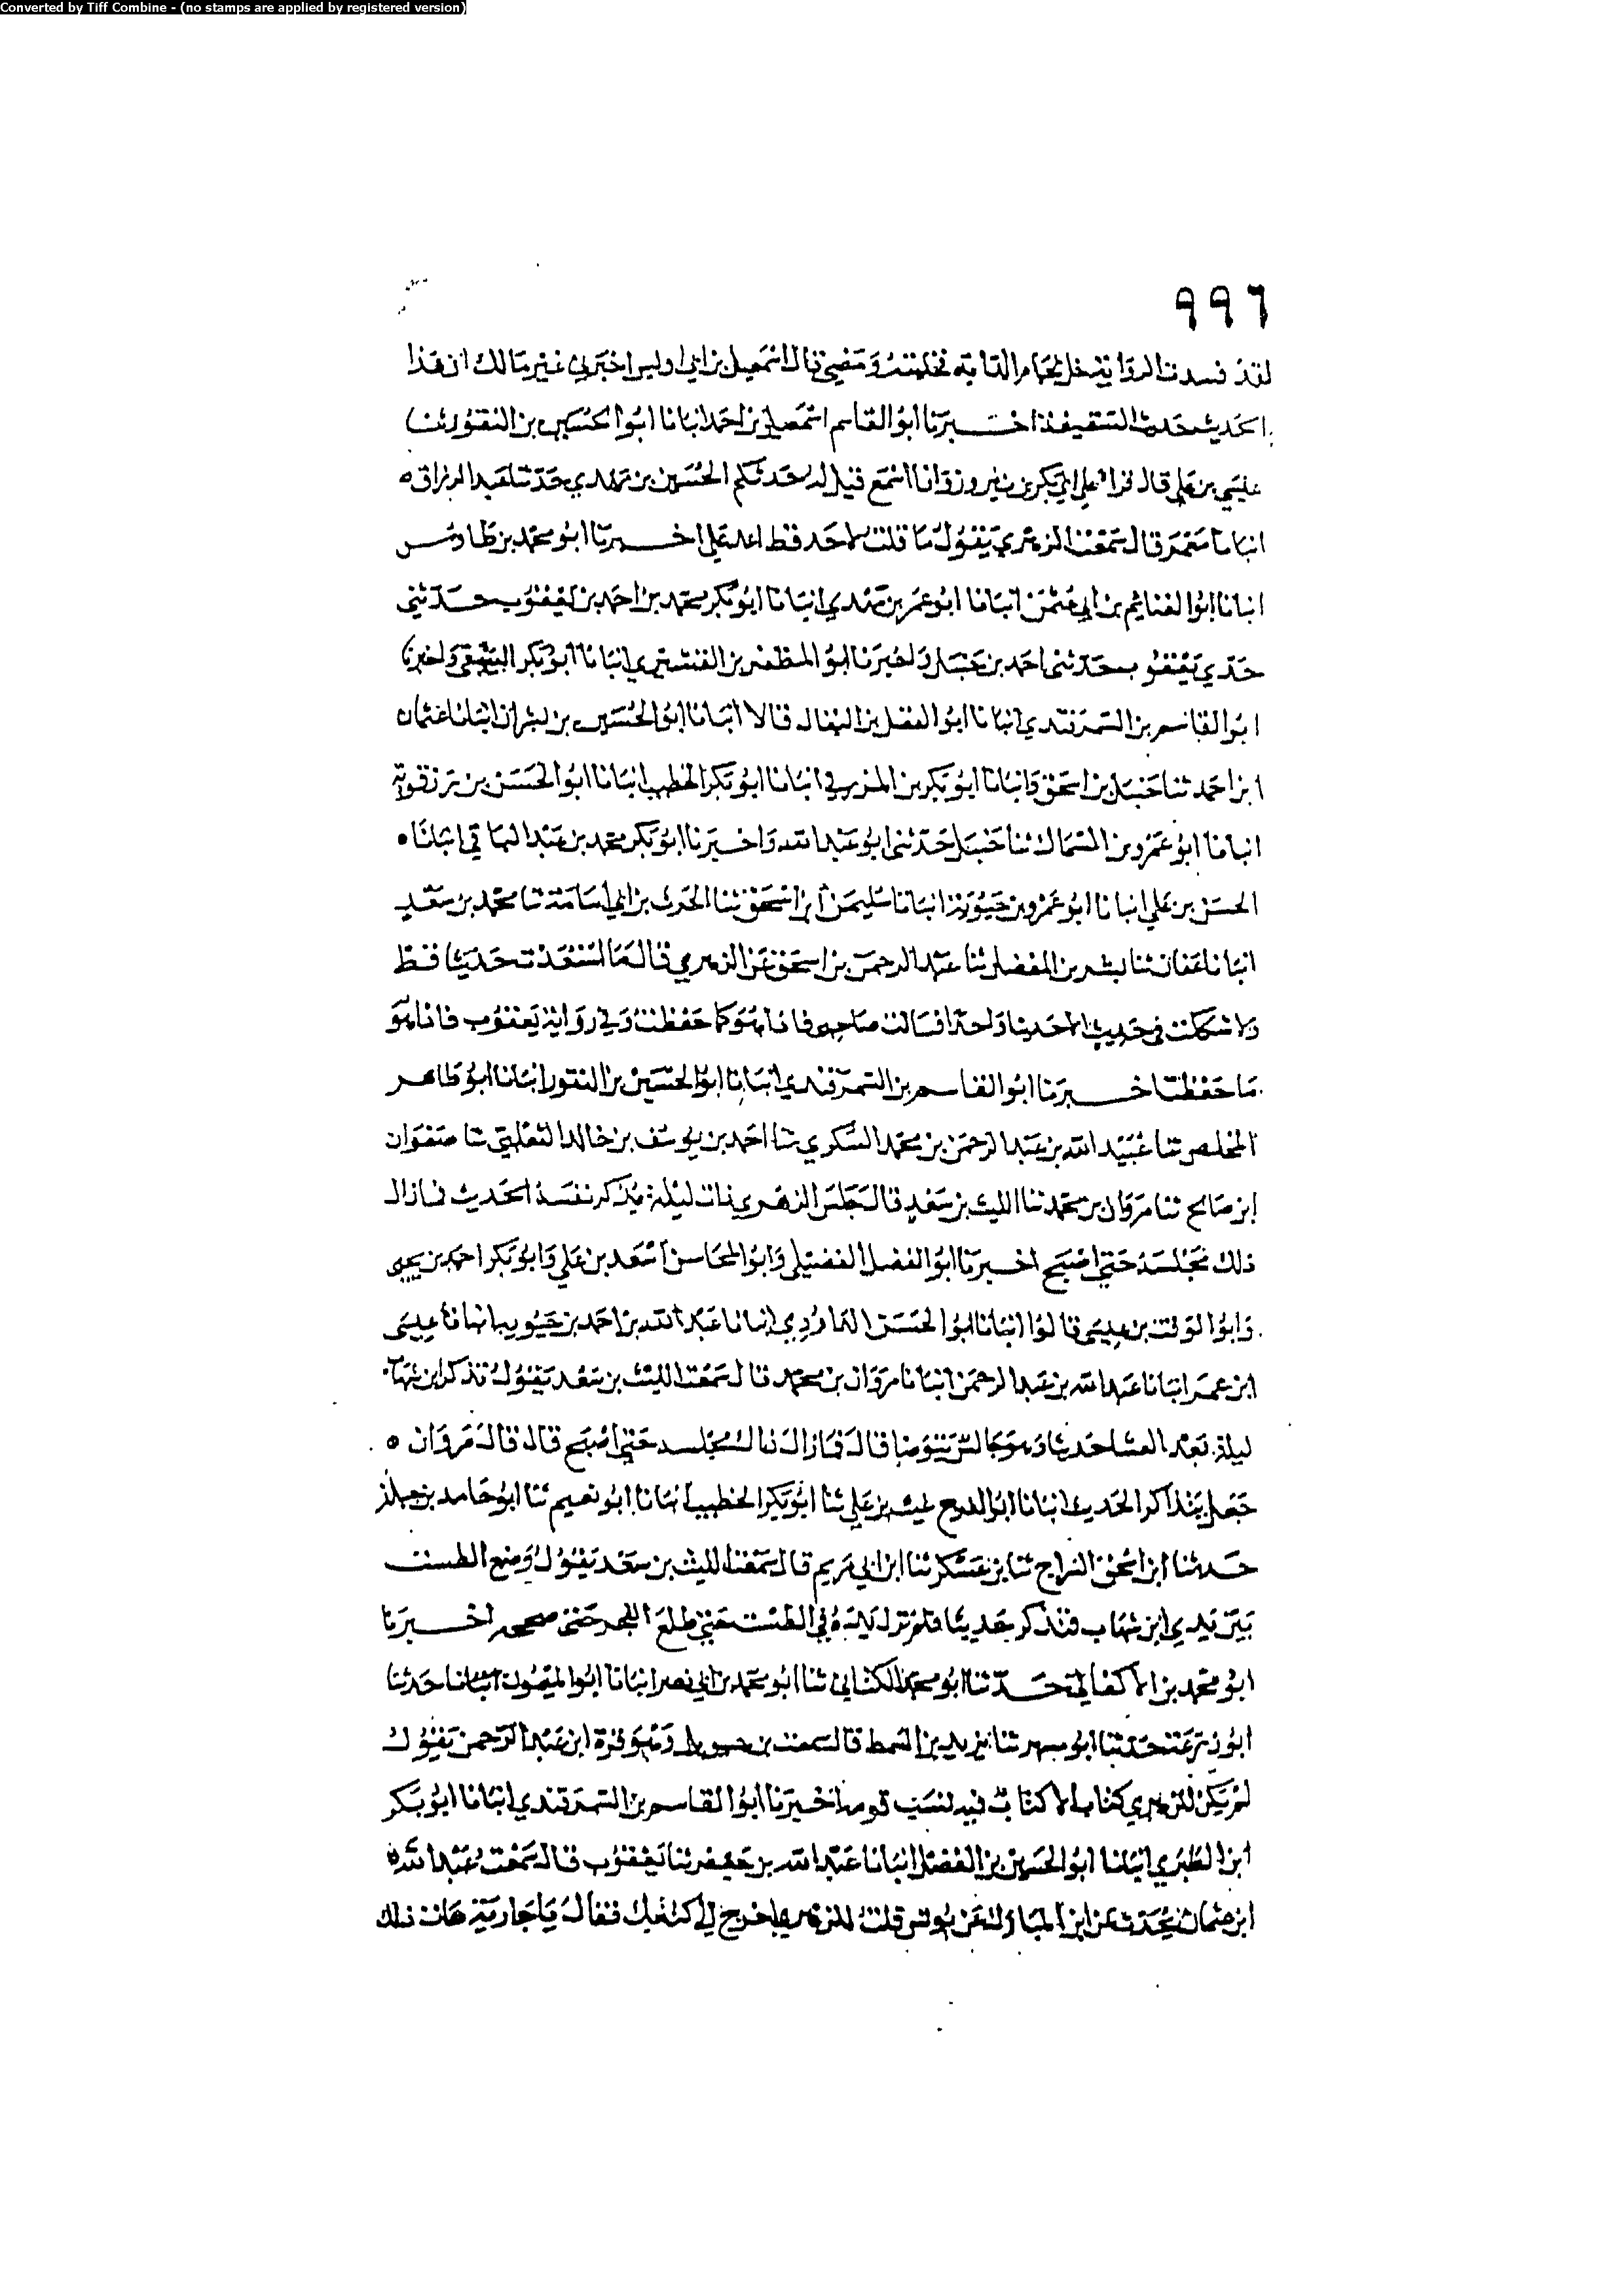 Converted by Tiff Combine - (no stamps are applied by registered version)
٩٩٦
لقد فسدت الرواية خل لجام الدابة فخليته ومضى قال اسمعيل بن ابي اويس اخبرني غير مالك ان هذا
الحديث حديث السقيفة اخبرنا ابو القاسم اسمعيل بن احمد انبانا ابو الحسين بن النقور ثنا
عيسى بن علي قال قراه علي ابي بكر بن نيروز وانا اسمع قيل له حدثكم الحسين بن مهدي حدثنا عبد الرزاق ه
انبانا معمر قال سمعت الزهري يقول ما قلت لاحد قط اعد علي اخبرنا ابو محمد بن طاوس
انبانا ابو الغنايم بن ابي عثمن انبانا ابو عمر بن مهدي انبانا ابو بكر محمد بن احمد بن يعقوب حدثني
جدي يعقوب حدثني احمد بن حنبل واخبرنا ابو المظفر بن القشيري انبانا ابو بكر البيهقي واخبرنا
ابو القاسم بن السمرقندي انبانا ابو الفضل بن البقال قالا انبانا ابو الحسين بن بشران انبانا عثمان
ابن احمد ثنا حنبل بن اسحق وانبانا ابو بكر بن المزرفي انبانا ابو بكر الخطيب انبانا ابو الحسن بن رزقويه
انبانا ابو عمرو بن السماك ثنا حنبل حدثني ابو عبد الله واخبرنا ابو بكر محمد بن عبد الباقي انبانا ه
الحسن بن علي انبانا ابو عمرو بن حيويه انبانا سليمن بن اسحق ثنا الحرث بن ابي اسامة ثنا محمد بن سعد
انبانا عفان ثنا بشر بن المفضل ثنا عبد الرحمن بن اسحق عن الزهري قال ما استعدت حديثا قط
ولا شككت في حديث الا حديثا واحدا فسالت صاحبي فاذا هو كما حفظت وفي رواية يعقوب فاذا هو
ما حفظت اخبرنا ابو القاسم بن السمرقندي انبانا ابو الحسين بن النقور انبانا ابو طاهر
المخلص ثنا عبيد الله بن عبد الرحمن بن محمد السكري ثنا احمد بن يوسف بن خالد التغلبي ثنا صفوان
ابن صالح ثنا مروان بن محمد ثنا الليث بن سعد قال جلس الزهري ذات ليلة يذكر نفسه الحديث فما زال
ذلك مجلسه حتى اصبح اخبرنا ابو الفضل الفضيلي وابو المحاسن اسعد بن علي وابو بكر احمد بن يحيى
وابو الوقت بن عيسى قالوا انبانا ابو الحسن الداودي انبانا عبد الله بن احمد بن حيويه انبانا عيسى
ابن عمر انبانا عبد الله بن عبد الرحمن انبانا مروان بن محمد قال سمعت الليث بن سعد يقول تذكر ابن شهاب
ليلة بعد العشا حديثا وهو جالس يتوضا قال فما زال ذاك مجلسه حتى اصبح قال قال مروان ه
جعل يتذاكر الحديث انبانا ابو الفرج غيث بن علي ثنا ابو بكر الخطيب انبانا ابو نعيم ثنا ابو حامد بن جبلة
حدثنا ابن اسحق السراج ثنا ابن عسكر ثنا ابن ابي مريم قال سمعت الليث بن سعد يقول وضع الطست
بين يدي ابن شهاب فتذكر حديثا فلم تزل يده في الطست حتى طلع الفجر حتى صححه اخبرنا
ابو محمد بن الاكفاني حدثنا ابو محمد الكتاني ثنا ابو محمد بن ابي نصر انبانا ابو الميمون انبانا حدثنا
ابو زرعة حدثنا ابو مسهر ثنا يزيد بن السمط قال سمعت وهو قرة ابن عبد الرحمن يقول
لم يكن للزهري كتاب الا كتاب فيه نسب قومه اخبرنا ابو القاسم بن السمرقندي انبانا ابو بكر
ابن الطبري انبانا ابو الحسين بن الفضل انبانا عبد الله بن جعفر ثنا يعقوب قال سمعت عبد الله ه
ابن عثمان يحدث عن ابن المبارك عن يونس قلت للزهري اخرج الي كتبك فقال يا جارية هات تلك